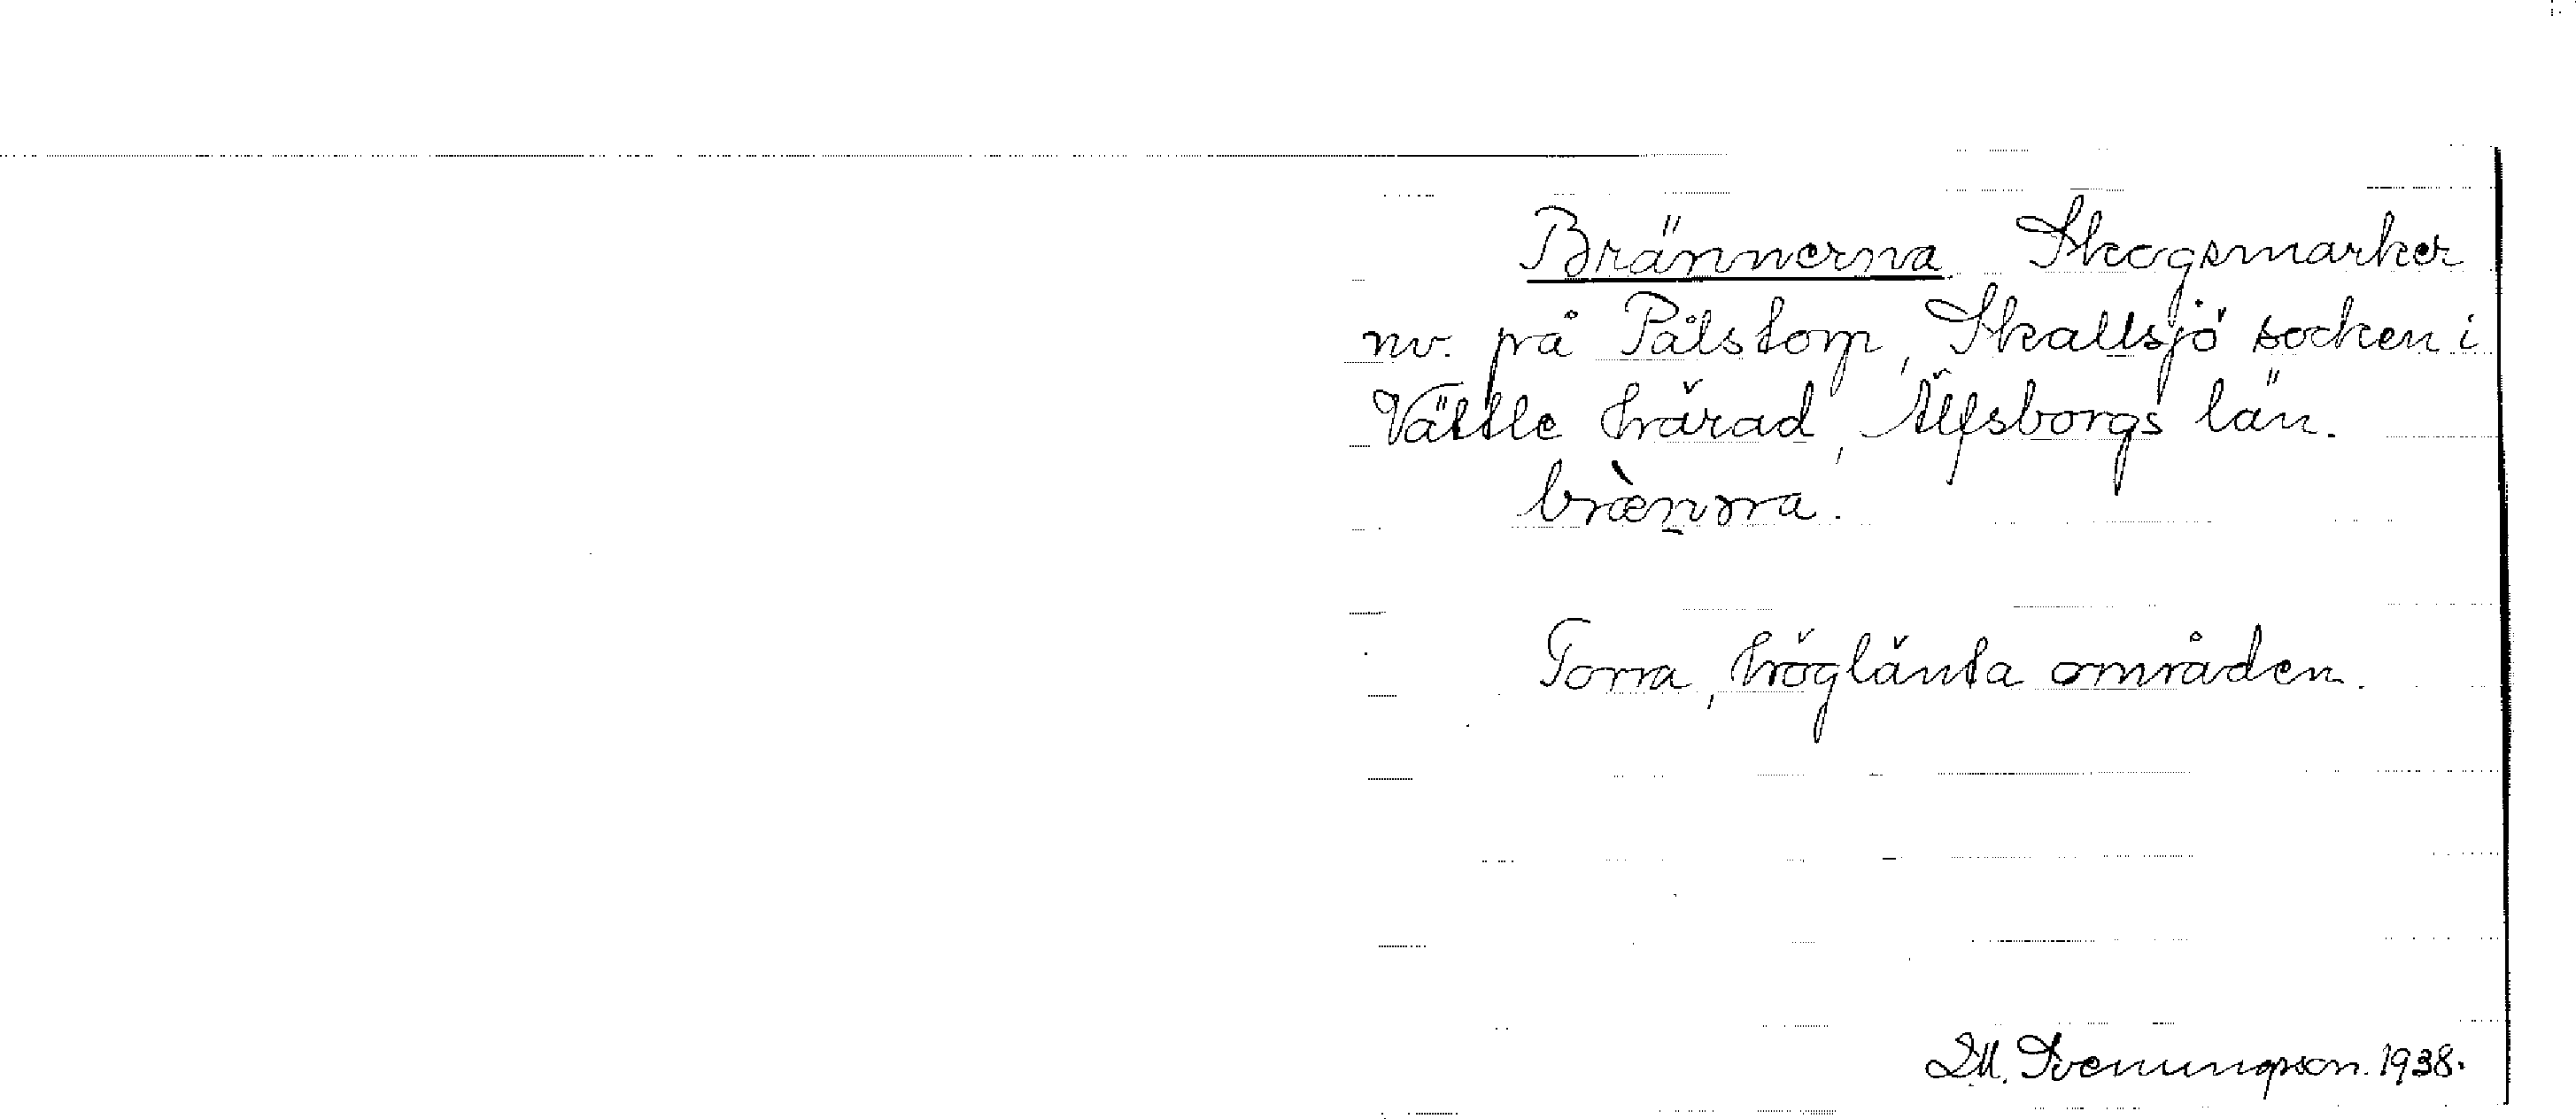 Brännerna. Skogsmarker
nv. på Pålstorp, Skallsjö socken i
Vättle härad, Älfsborgs län.
bræ̀nɔra.
Torra, höglänta områden.
D.M. Svenungsson. 1938.